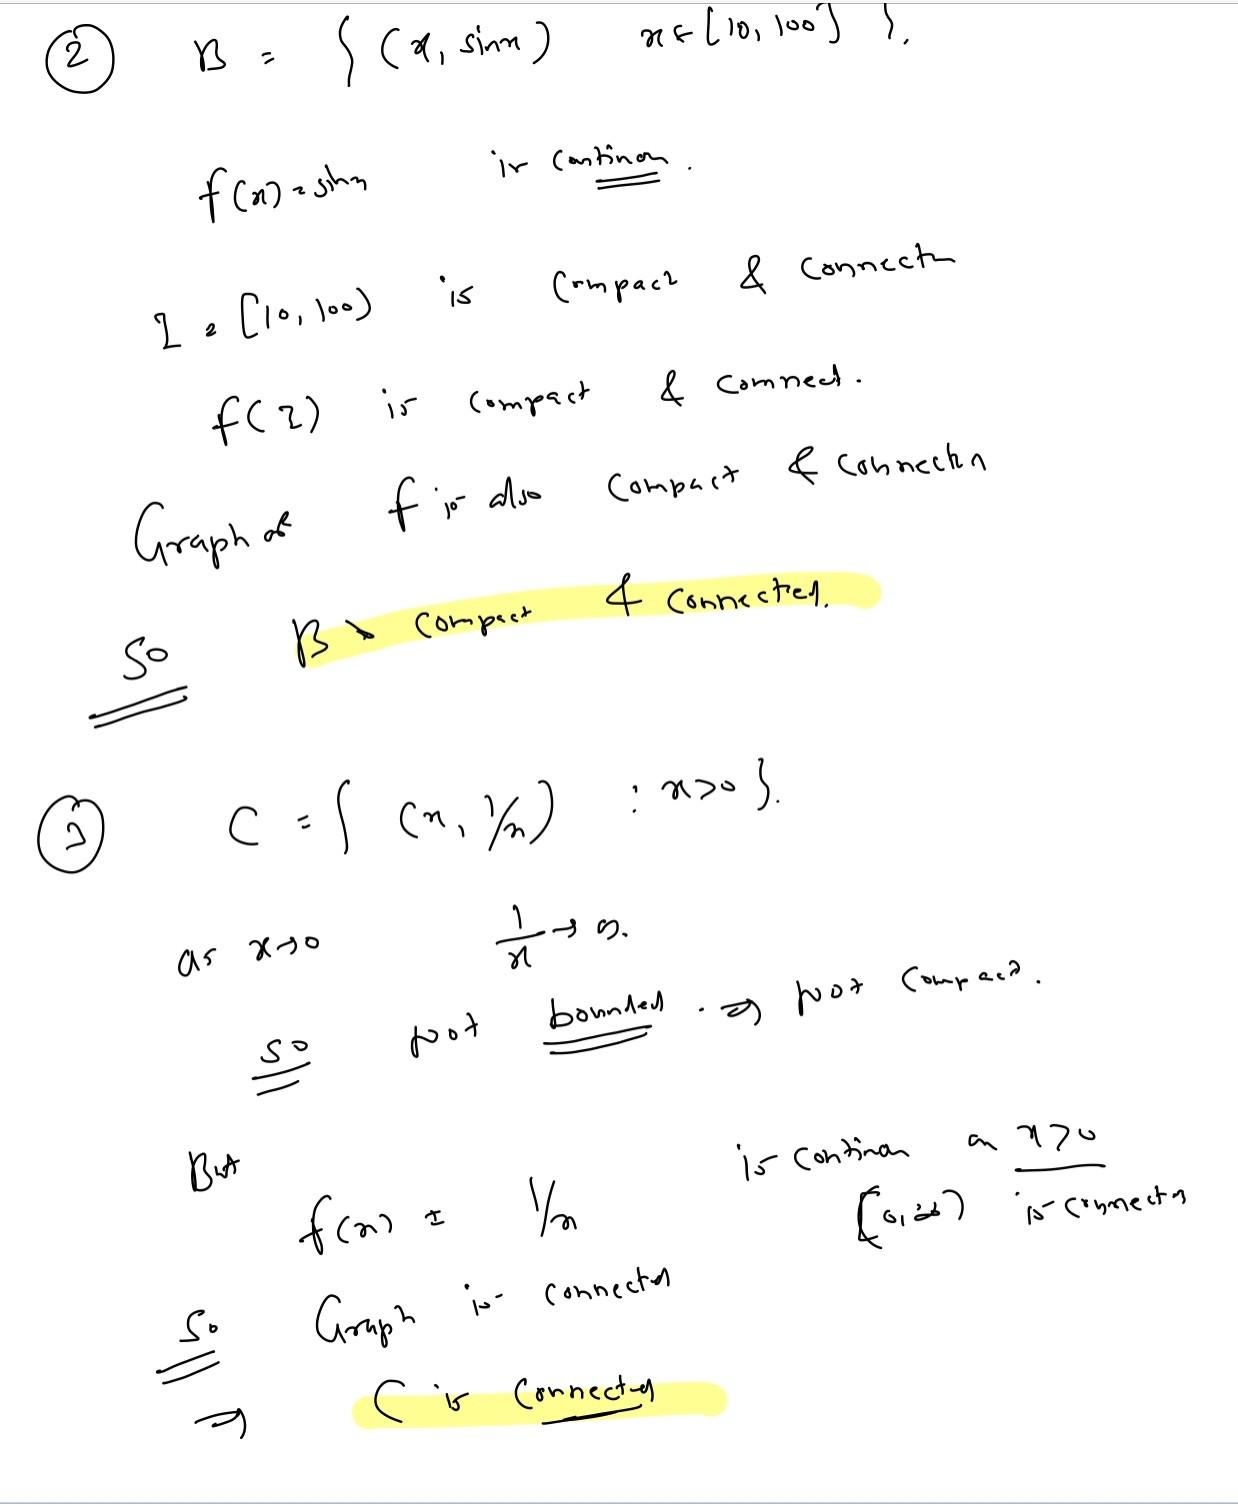 ② B = { (x, sinx) x ∈ [10, 100] }.
f(x) = sinx is continou .
I = [10, 100) is compact & connect
f(I) is compact & connect.
Graph of f is also compact & connectn
So B is compact & connected.
③ C = { (x, 1/x) : x>0 }.
as x→0 1/x → ∞.
So Not bounded . ⇒ Not compact.
But f(x) = 1/x is continou on x>0
(0, ∞) is connectd
So Graph is connected
⇒ C is connected